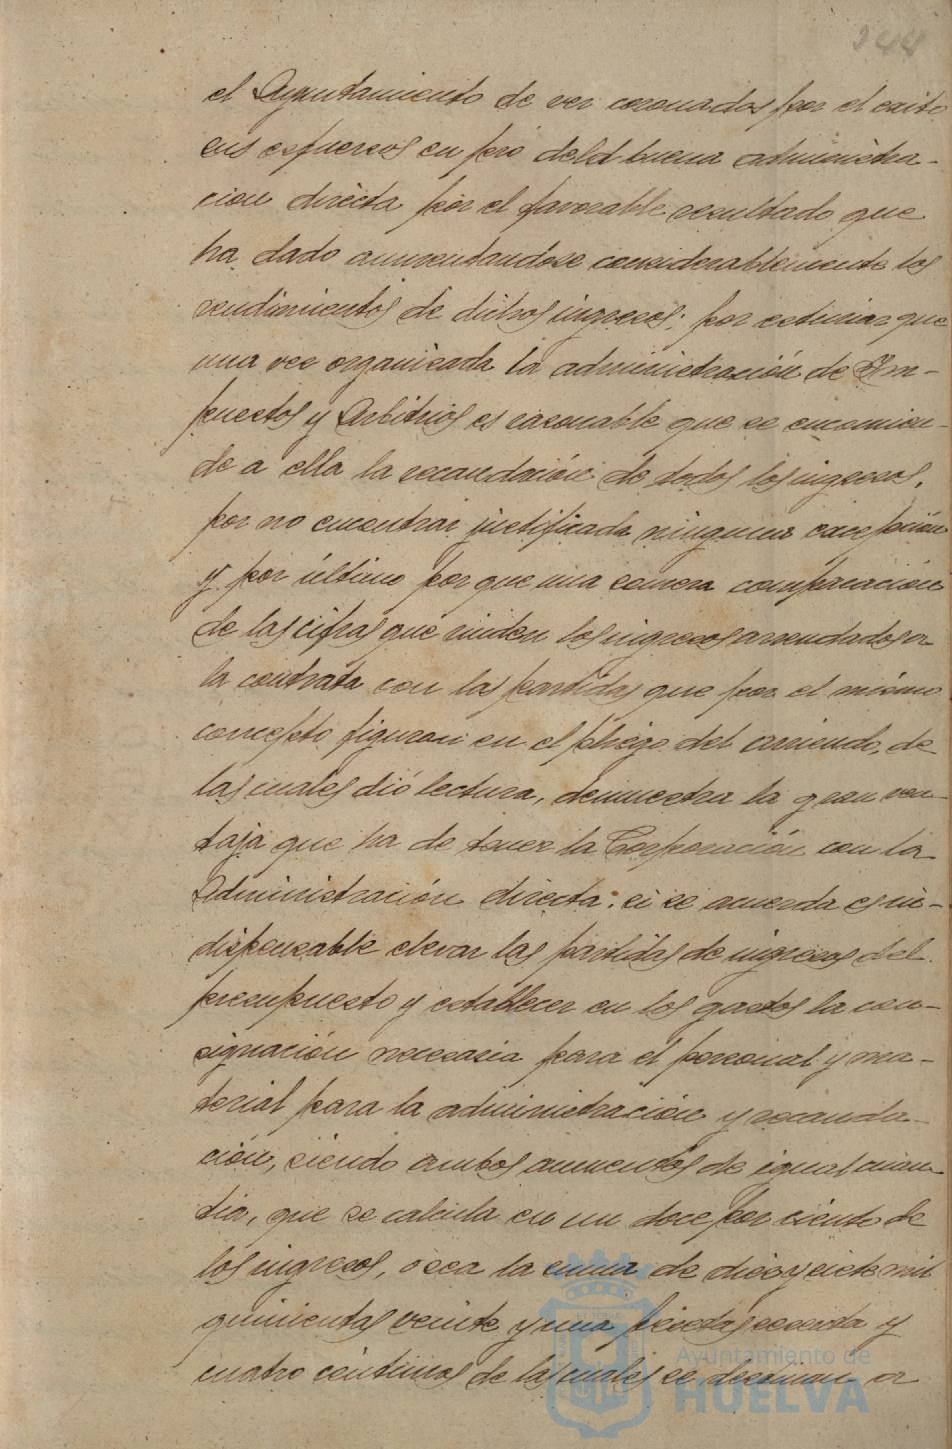 244
el Ayuntamiento de ver coronados por el exito
sus esfuerzos en pró de la buena administra-
cion directa por el favorable resultado que
ha dado aumentandose considerablemente los
rendimientos de dichos ingresos; por estimar que
una vez organizada la administración de Im-
puestos y Arbitrios es razonable que se encomien-
de a ella la recaudación de todos los ingresos,
por no encontrar justificada ninguna excepción
y por último por que una somera comparación
de las cifras que rinden los ingresos arrendados a
la contrata con las partidas que por el mismo
concepto figuran en el pliego del arriendo, de
las cuales dió lectura, demuestra la gran ven-
taja que ha de tener la Corporación con la
Administración directa: si se acuerda es in-
dispensable elevar las partidas de ingresos del
presupuesto y establecer en los gastos la con-
signación necesaria para el personal y ma-
terial para la administración y recauda-
ción, siendo ambos aumentos de igual cuan-
tia, que se calcula en un doce por ciento de
los ingresos, ó sea la suma de diez y siete mil
quinientas veinte y una pesetas sesenta y
cuatro céntimos de las cuales se destinan a
Ayuntamiento de
HUELVA